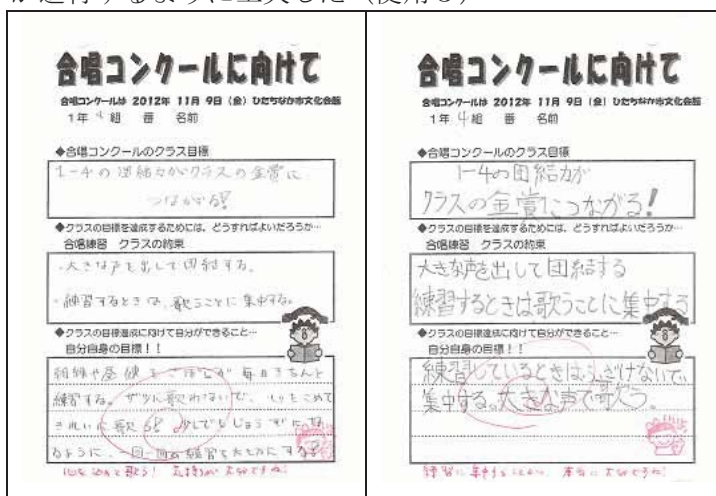 合唱コンクールに向けて
合唱コンクールは 2012年 11月 9日(金) ひたちなか市文化会館
1年 4組 番 名前
◆合唱コンクールのクラス目標
1-4の団結力がクラスの金賞に
つながる!
◆クラスの目標を達成するためには、どうすればよいだろうか…
合唱練習 クラスの約束
・大きな声を出して団結する。
・練習するときは、歌うことに集中する。
◆クラスの目標達成に向けて自分ができること…
自分自身の目標!!
朝練や昼練をさぼらず毎日きちんと
練習する。ザツに歌わないで、心をこめて
きれいに歌う!少しでもじょうずになれ
るように、一回一回の練習を大じにする!
心を込めて歌う! 気持ちが大切ですね!
合唱コンクールに向けて
合唱コンクールは 2012年 11月 9日(金) ひたちなか市文化会館
1年 4組 番 名前
◆合唱コンクールのクラス目標
1-4の団結力が
クラスの金賞につながる!
◆クラスの目標を達成するためには、どうすればよいだろうか…
合唱練習 クラスの約束
大きな声を出して団結する
練習するときは歌うことに集中する
◆クラスの目標達成に向けて自分ができること…
自分自身の目標!!
練習しているときはふざけないで、
集中する。大きな声で歌う。
練習に集中すること 本当に大切ですね!